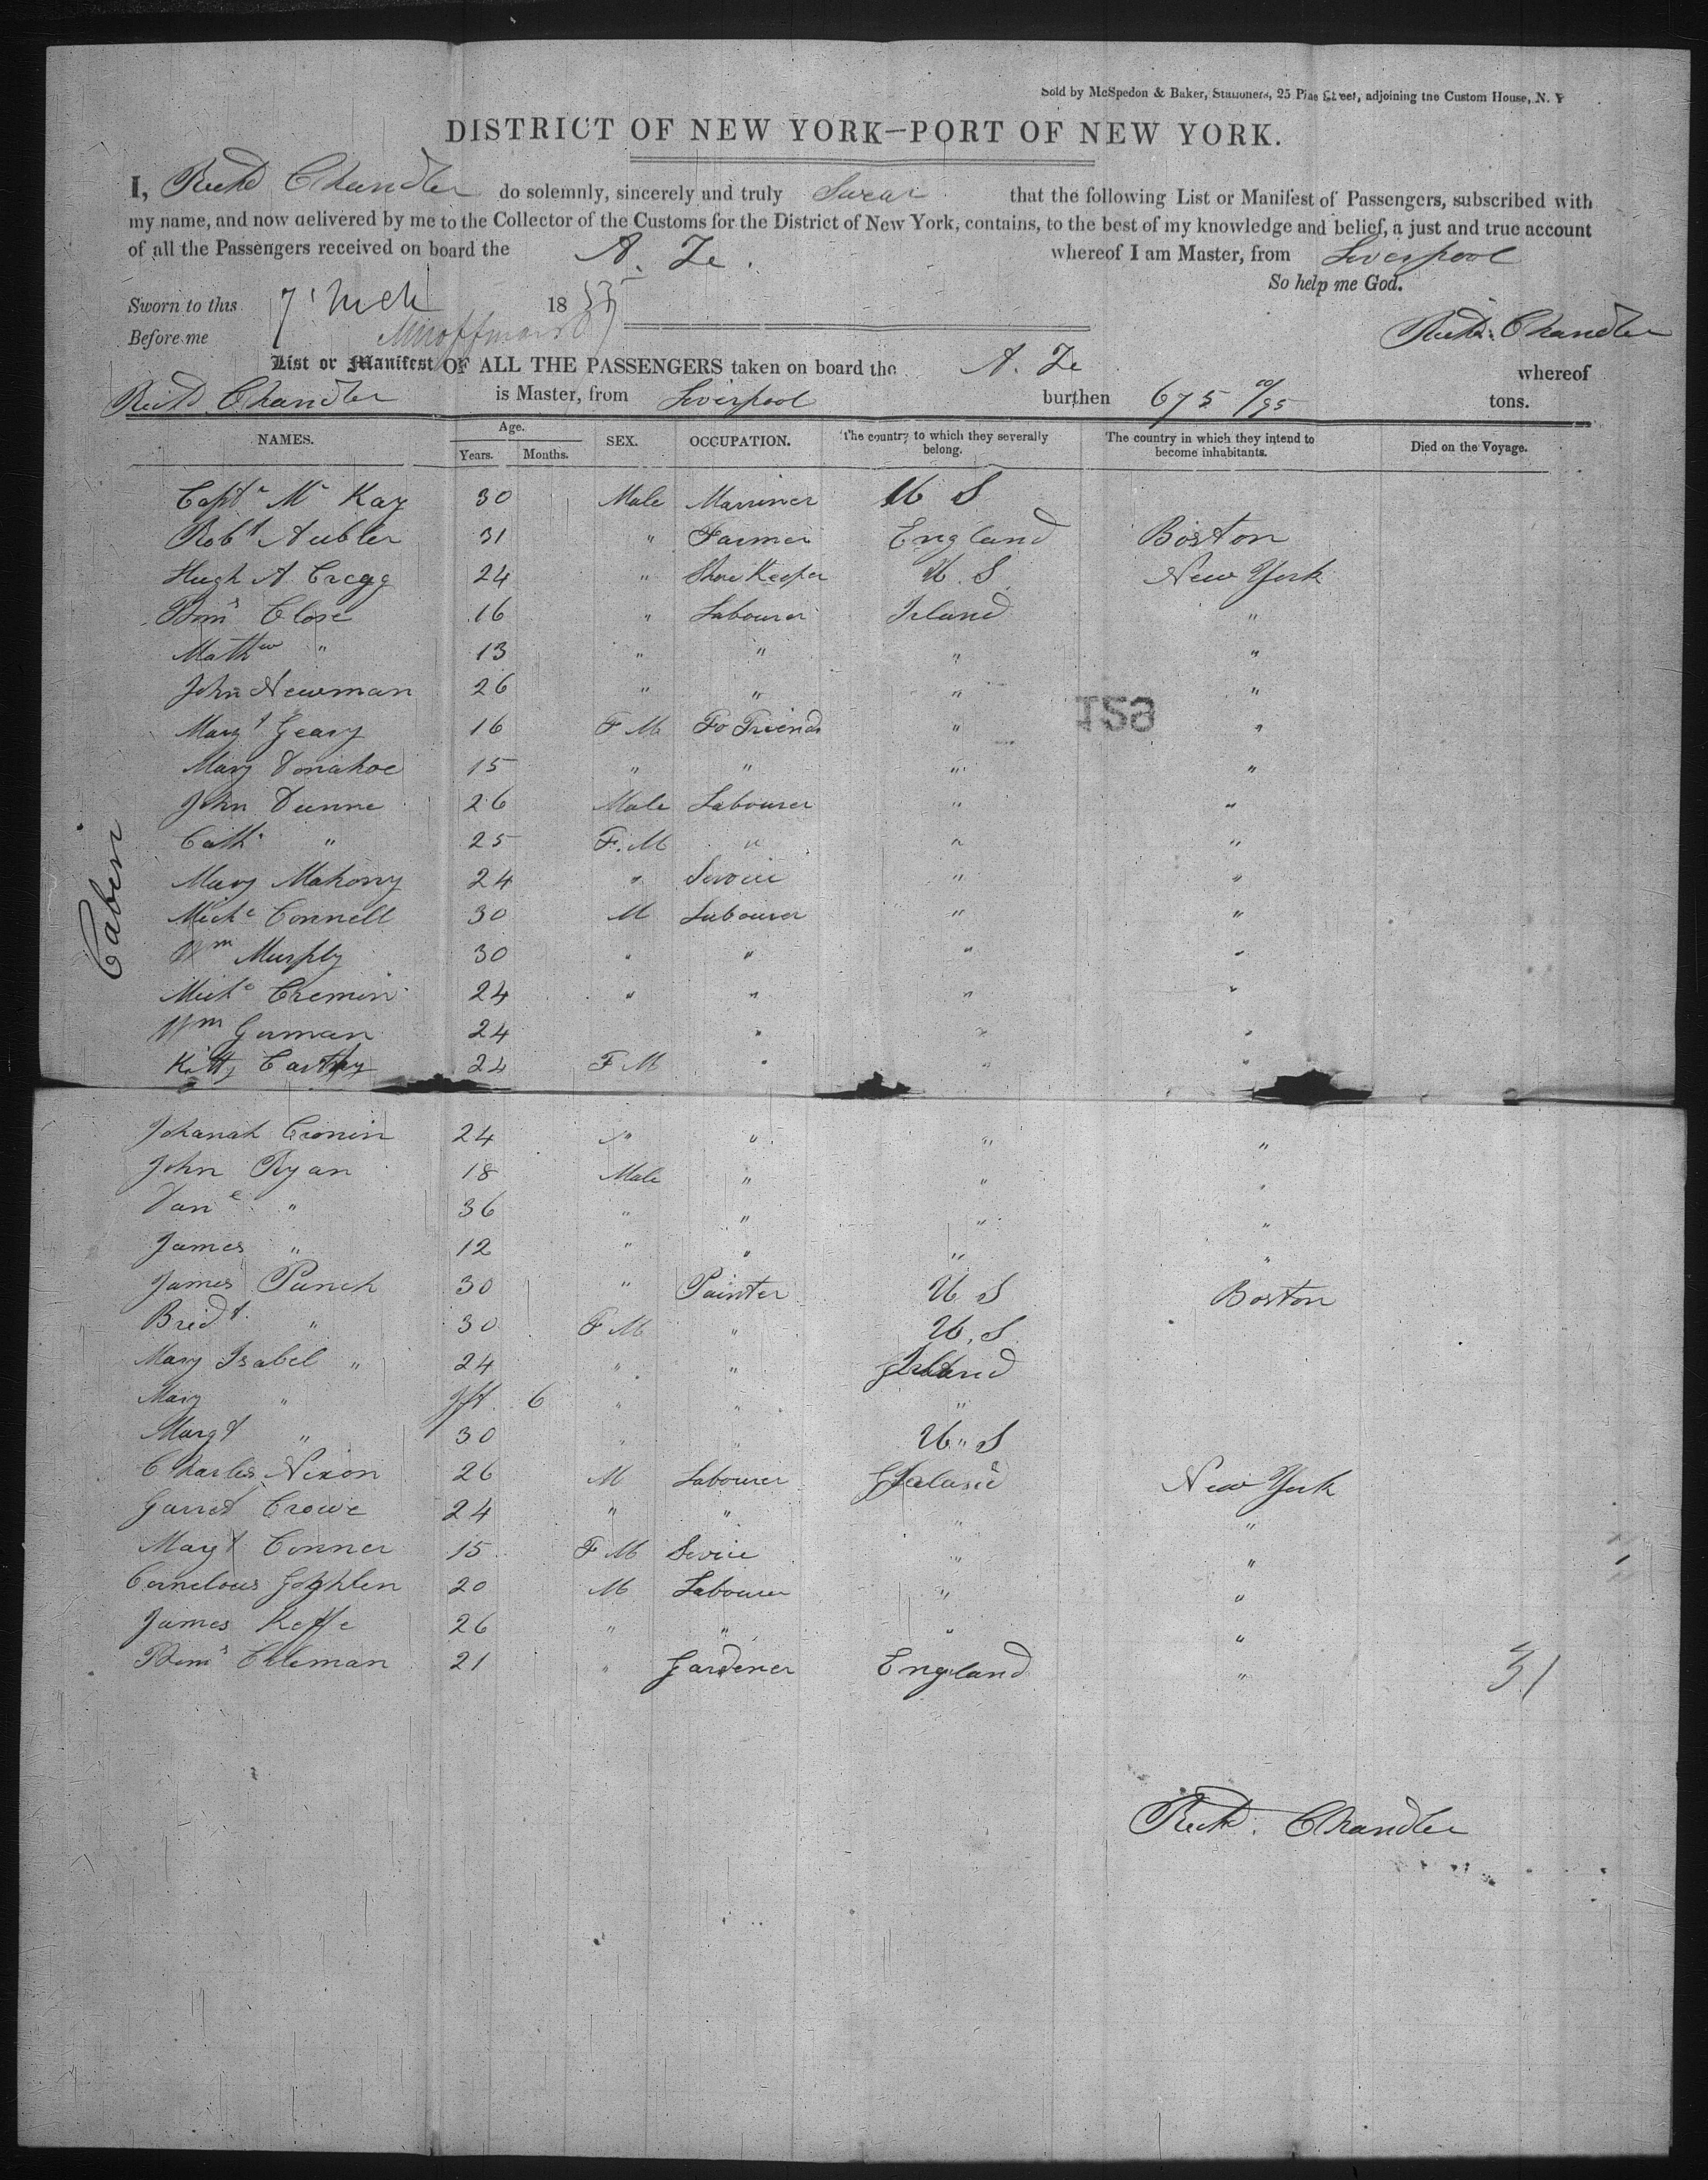 Sold by McSpedon & Baker, Stationers, 25 Pine Street, adjoining the Custom House, N. Y
DISTRICT OF NEW YORK—PORT OF NEW YORK.
I, Richd Chandler do solemnly, sincerely and truly Swear that the following List or Manifest of Passengers, subscribed with
my name, and now delivered by me to the Collector of the Customs for the District of New York, contains, to the best of my knowledge and belief, a just and true account
of all the Passengers received on board the A. Ze. whereof I am Master, from Liverpool
So help me God.
Sworn to this 7 Mch 1855
Before me
Richd. Chandler
List or Manifest OF ALL THE PASSENGERS taken on board the A. Ze whereof
Richd. Chandler is Master, from Liverpool burthen 675 /95 tons.
NAMES. Age. Years. Months. SEX. OCCUPATION. The country to which they severally belong. The country in which they intend to become inhabitants. Died on the Voyage.
Cabin
Capt Mc Kay 30 Male Marriner U S
Robt Aubler 31 " Farmer England Boston
Hugh A Cregg 24 " Shore Keeper U. S New York
Close 16 " Labourer Irland "
Mathw " 13 " " " "
John Newman 26 " " " "
Margt Geary 16 F M To Friends " "
Mary Donahoe 15 " " " "
John Dunne 26 Male Labourer " "
Cath " 25 F. M " " "
Mary Mahony 24 " Servic " "
Miche Connell 30 M Labourer " "
Wm Murphy 30 " " " "
Miche Cremin 24 " " " "
Wm Gorman 24 " " "
Kitty Carthy 24 F M " " "
Johanah Cronin 24 " " " "
John Ryan 18 Male " " "
Dane " 36 " " " "
James " 12 " " " "
James Punch 30 " Painter U S Boston
Bridt. " 30 F M " U. S
Mary Isabel " 24 " " Irland
Mary " Jft. 6 " " "
Margt " 30 " " U " S
Charles Nixon 26 M Labourer Irland New York
Garret Crowe 24 " " " "
Margt Conner 15 F M Servic " "
Cornelous 20 M Labourer " "
James Keffe 26 " " " "
Coleman 21 " Gardener England "
31
Richd. Chandler